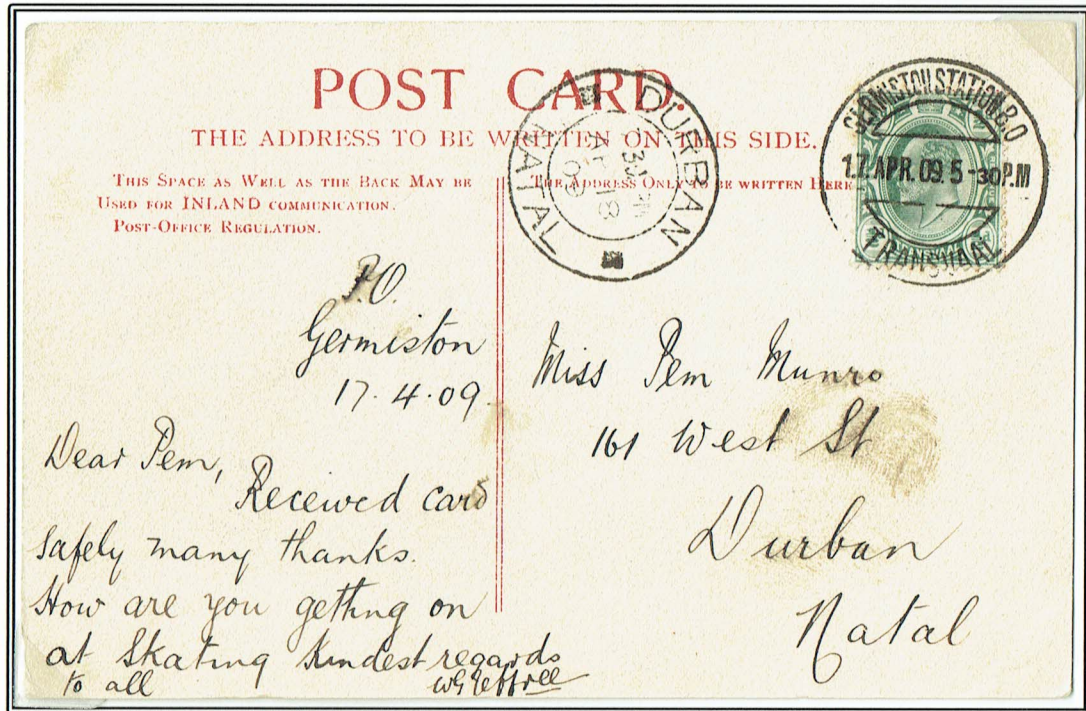 POST CARD.
THE ADDRESS TO BE WRITTEN ON THIS SIDE.
THIS SPACE AS WELL AS THE BACK MAY BE
USED FOR INLAND COMMUNICATION.
POST-OFFICE REGULATION.
THE ADDRESS ONLY TO BE WRITTEN HERE
DURBAN
AP 18
09
NATAL
GERMISTON STATION B.O
17.APR.09.5-30P.M
TRANSVAAL
P.O.
Germiston
17.4.09.
Dear Pem,
Received card
safely many thanks.
How are you getting on
at Skating Kindest regards
to all
Miss Pem Munro
161 West St
Durban
Natal